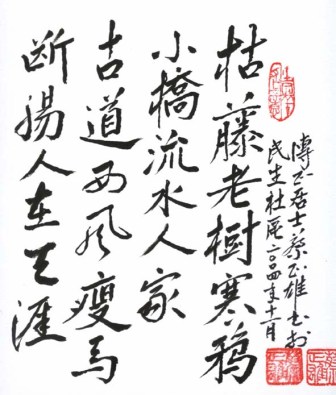 枯藤老樹寒鴉
小橋流水人家
古道西风瘦马
断腸人在天涯
居士蔡正雄书於
民生社區二〇〇四年十二月